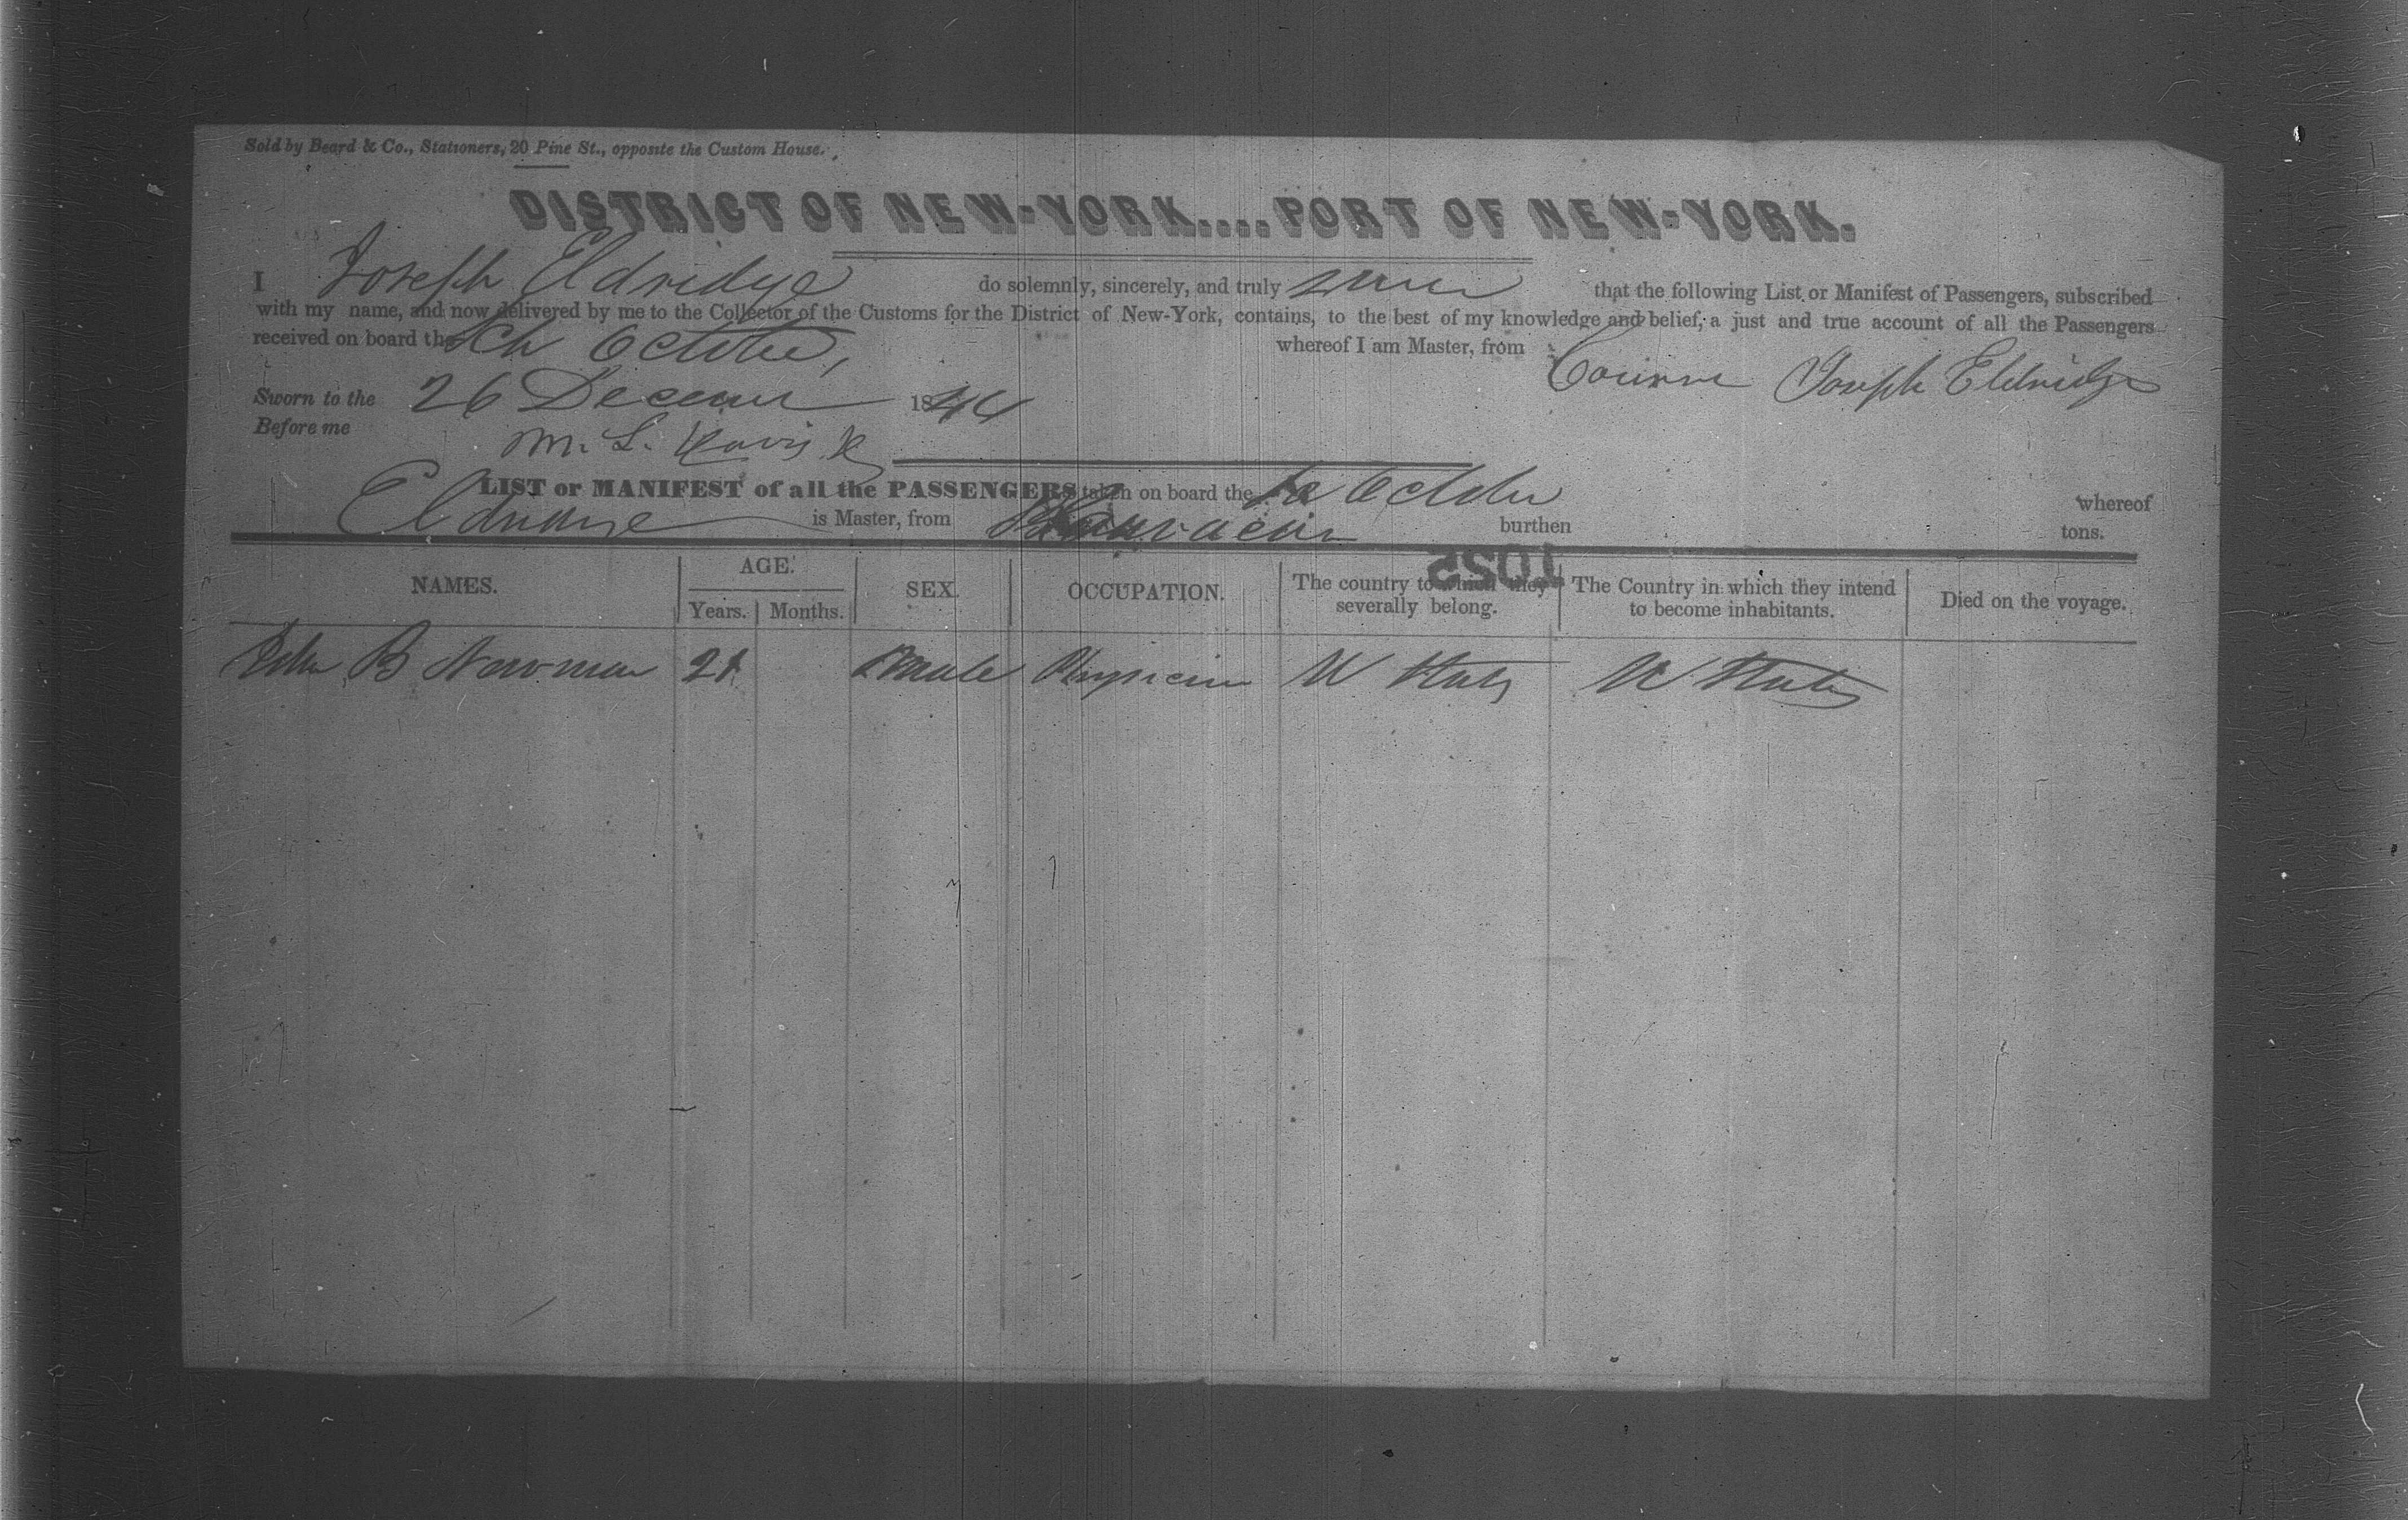 Sold by Beard & Co., Stationers, 20 Pine St., opposite the Custom House.
DISTRICT OF NEW-YORK....PORT OF NEW-YORK.
I Joseph Eldridge do solemnly, sincerely, and truly that the following List or Manifest of Passengers, subscribed
with my name, and now delivered by me to the Collector of the Customs for the District of New-York, contains, to the best of my knowledge and belief, a just and true account of all the Passengers
received on board the Sch October, whereof I am Master, from
Joseph Eldridge
Sworn to the 26 Decem 1844
Before me
M. L. Davis
LIST or MANIFEST of all the PASSENGERS taken on board the October whereof
Eldridge is Master, from burthen tons.
1052
NAMES. AGE. SEX. OCCUPATION. The country to which they severally belong. The Country in which they intend to become inhabitants. Died on the voyage.
Years. Months.
John B Newman male Physician U States U States